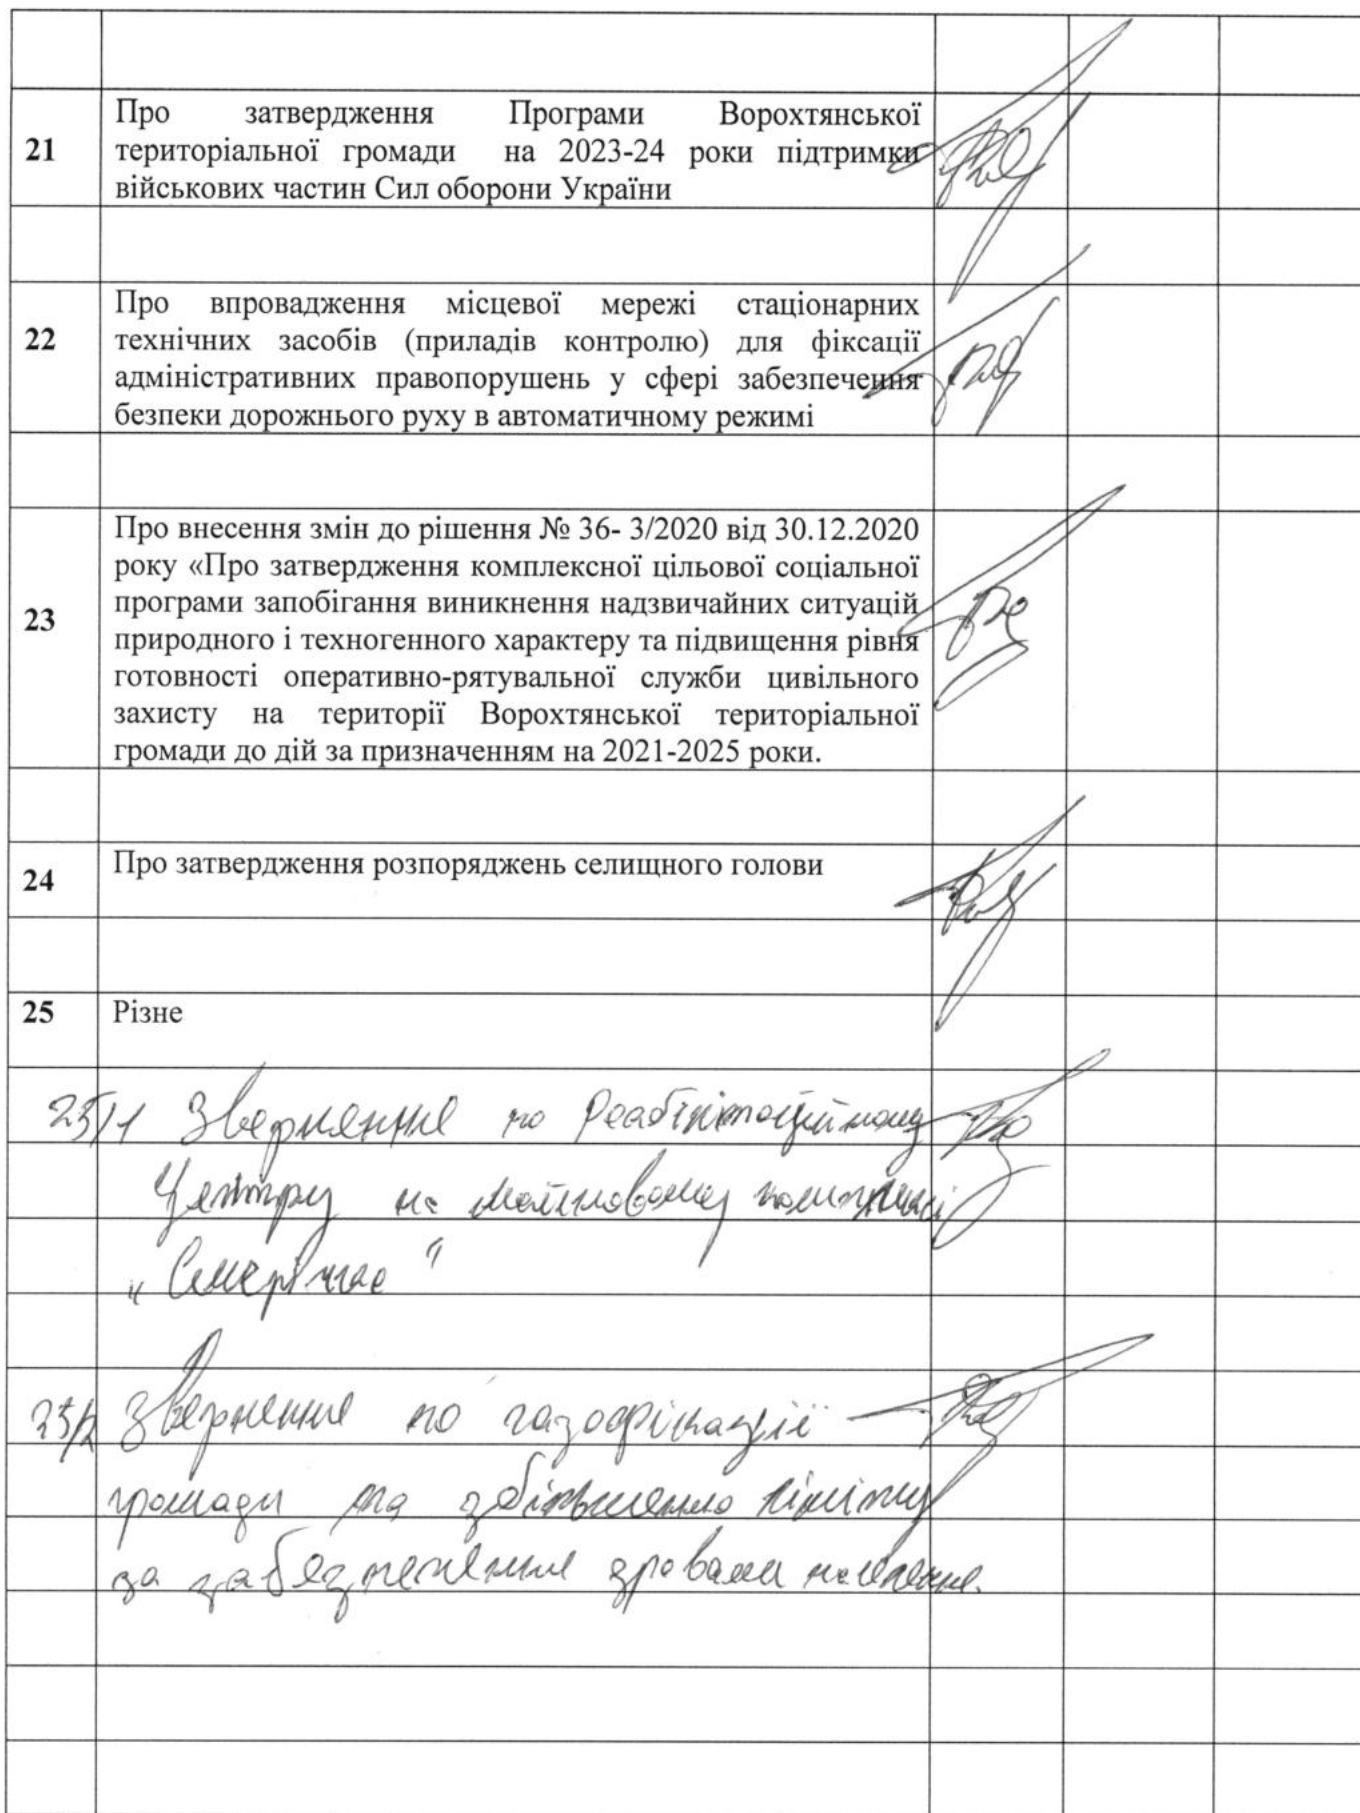 21
Про затвердження Програми Ворохтянської
територіальної громади на 2023-24 роки підтримки
військових частин Сил оборони України
22
Про впровадження місцевої мережі стаціонарних
технічних засобів (приладів контролю) для фіксації
адміністративних правопорушень у сфері забезпечення
безпеки дорожнього руху в автоматичному режимі
23
Про внесення змін до рішення № 36- 3/2020 від 30.12.2020
року «Про затвердження комплексної цільової соціальної
програми запобігання виникнення надзвичайних ситуацій
природного і техногенного характеру та підвищення рівня
готовності оперативно-рятувальної служби цивільного
захисту на території Ворохтянської територіальної
громади до дій за призначенням на 2021-2025 роки.
24 Про затвердження розпоряджень селищного голови
25 Різне
25/1 Звернення по Реабілітаційному
Центру на майновому комплексі
"Смерічка"
25/2 Звернення по газофікації
громади та збільшенню ліміту
за забезпечення дровами населення.